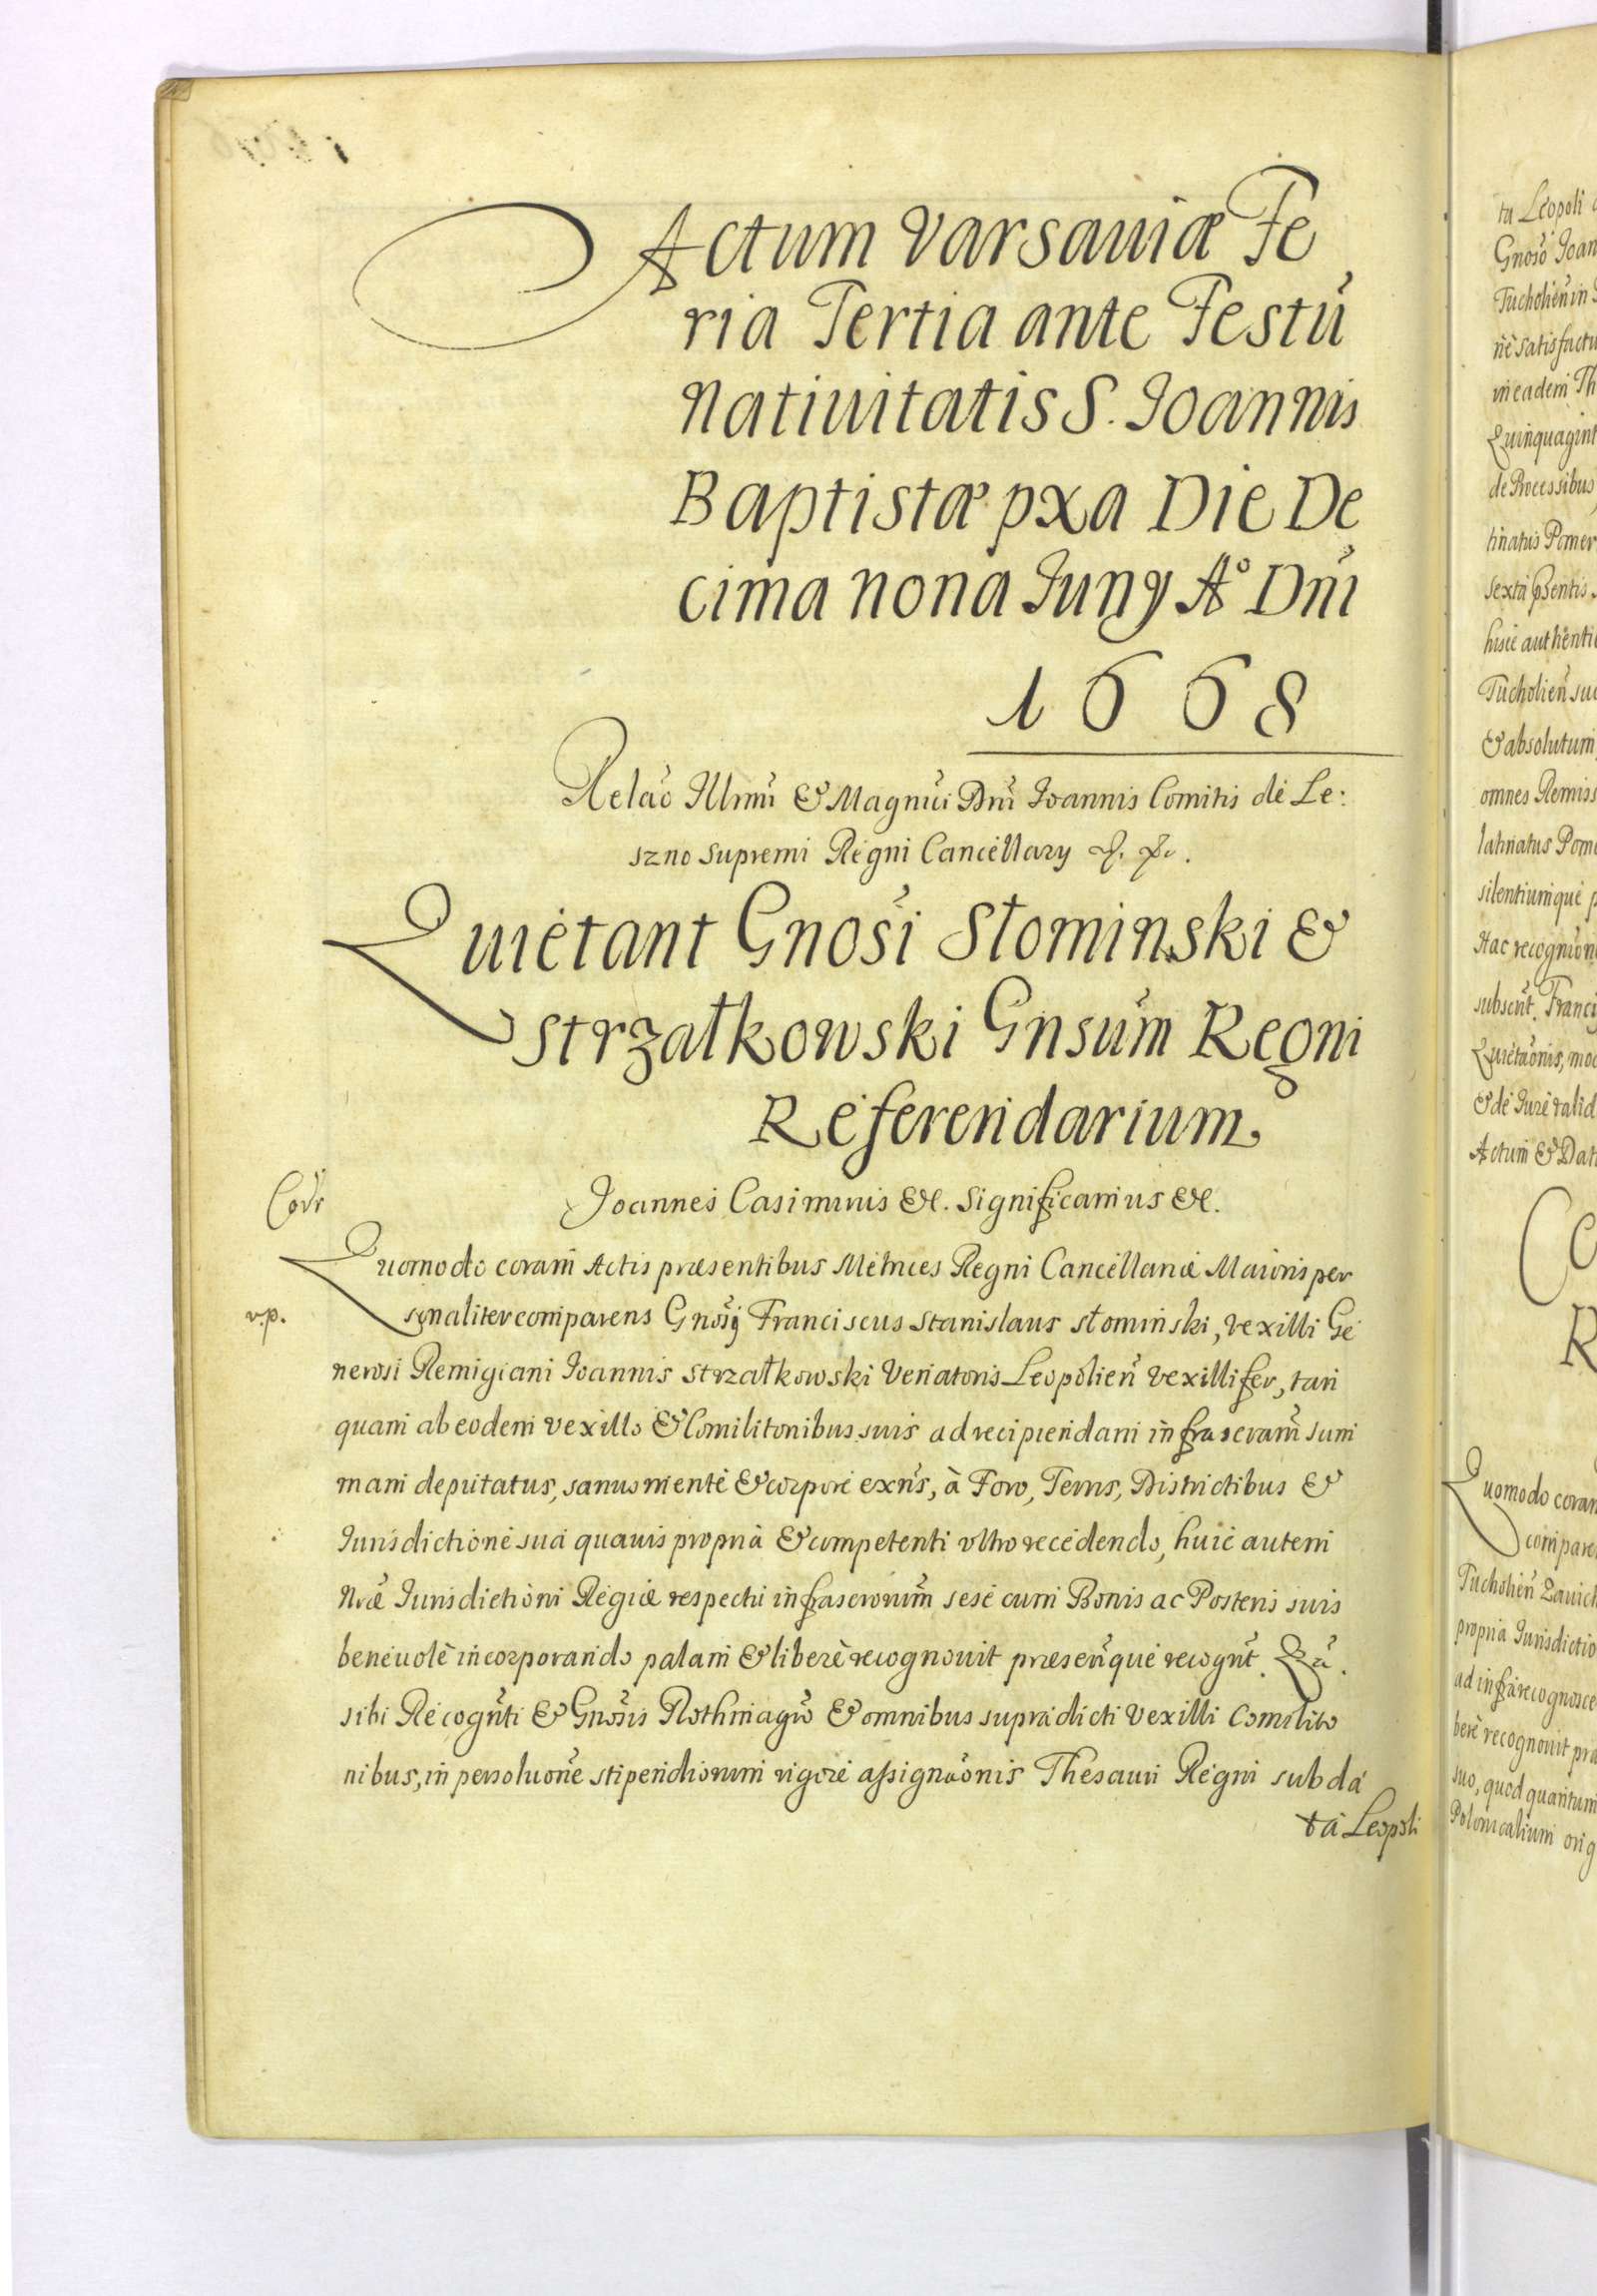 Actum Varsaviæ Fe
ria Tertia ante Festū
Nativitatis S. Joannis
Baptistæ pxa Die De
cima nona Juny Aº Dni
1668
Relaō Illmi & Magnici Dni Joannis Comitis de Le:
szno Supremi Regni Cancellary
Quietant Gnosi Słominski &
Strzałkowski Gnsum Regni
Referendarium
Joannes Casimirus &c. Significamus &c.
Covr
Quomodo coram Actis præsentibus Metrices Regni Cancellariæ Maioris per
v.p.
sonaliter comparens Gnosy Franciscus Stanislaus Słominski, Vexilli Ge
nerosi Remigiani Joannis Strzałkowski Venatoris Leopolien Vexillifer, tan
quam ab eodem Vexillo & Comilitonibus suis ad recipiendam infrascram sum
mam deputatus, sanus mente & corpore exns, à Foro, Terris, Districtibus &
Jurisdictione sua quavis propria & competenti vltro recedendo, huic autem
Nræ Jurisdictioni Regiæ respectu infrascrorum sese cum Bonis ac Posteris suis
benevolè incorporando palam & liberè recognovit præsenque recognt. Qa.
sibi Recognti & Gnosus Rothmagro & omnibus supradicti Vexilli Comilito
nibus, in persoluone stipendiorum vigore assignaonis Thesauri Regni sub da
ta Leopoli
ta Leopoli
Gnoso Joan
Tucholien in
ne satisfactu
in eadem Th
Quinquagint
de Processibus
tinatus Pomer
sexta psentis
huic authenti
Tucholien su
& absolutum
omnes Remiss
latinatus Pom
silentiumque p
Hac recognion
subscrt. Franci
Quietaonis, mo
& de Jure valid
Actum & Dat
Co
R
Quomodo coram
compare
Tucholien Zavich
propria Jurisdictio
ad infra recognosce
bere recognovit pra
suo, quod quantum
Polonicalium orig